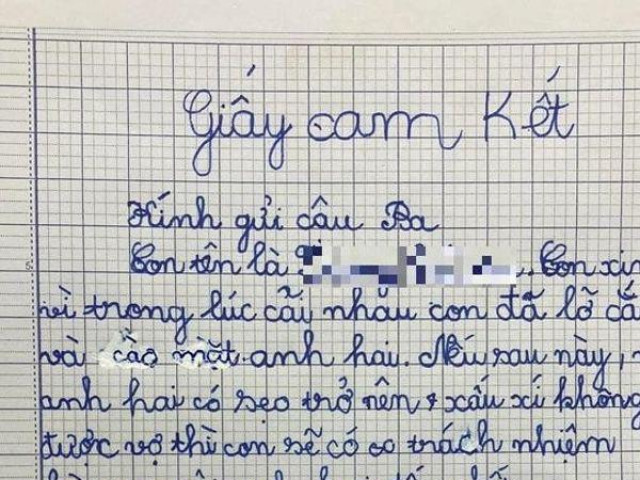 Giấy cam Kết
Kính gửi cậu Ba
Con tên là .. Con xin
vì trong lúc cãi nhau con đã lỡ
và cào mặt anh hai. Nếu sau này,
anh hai có sẹo trở nên xấu xí không
được vợ thì con sẽ có trách nhiệm